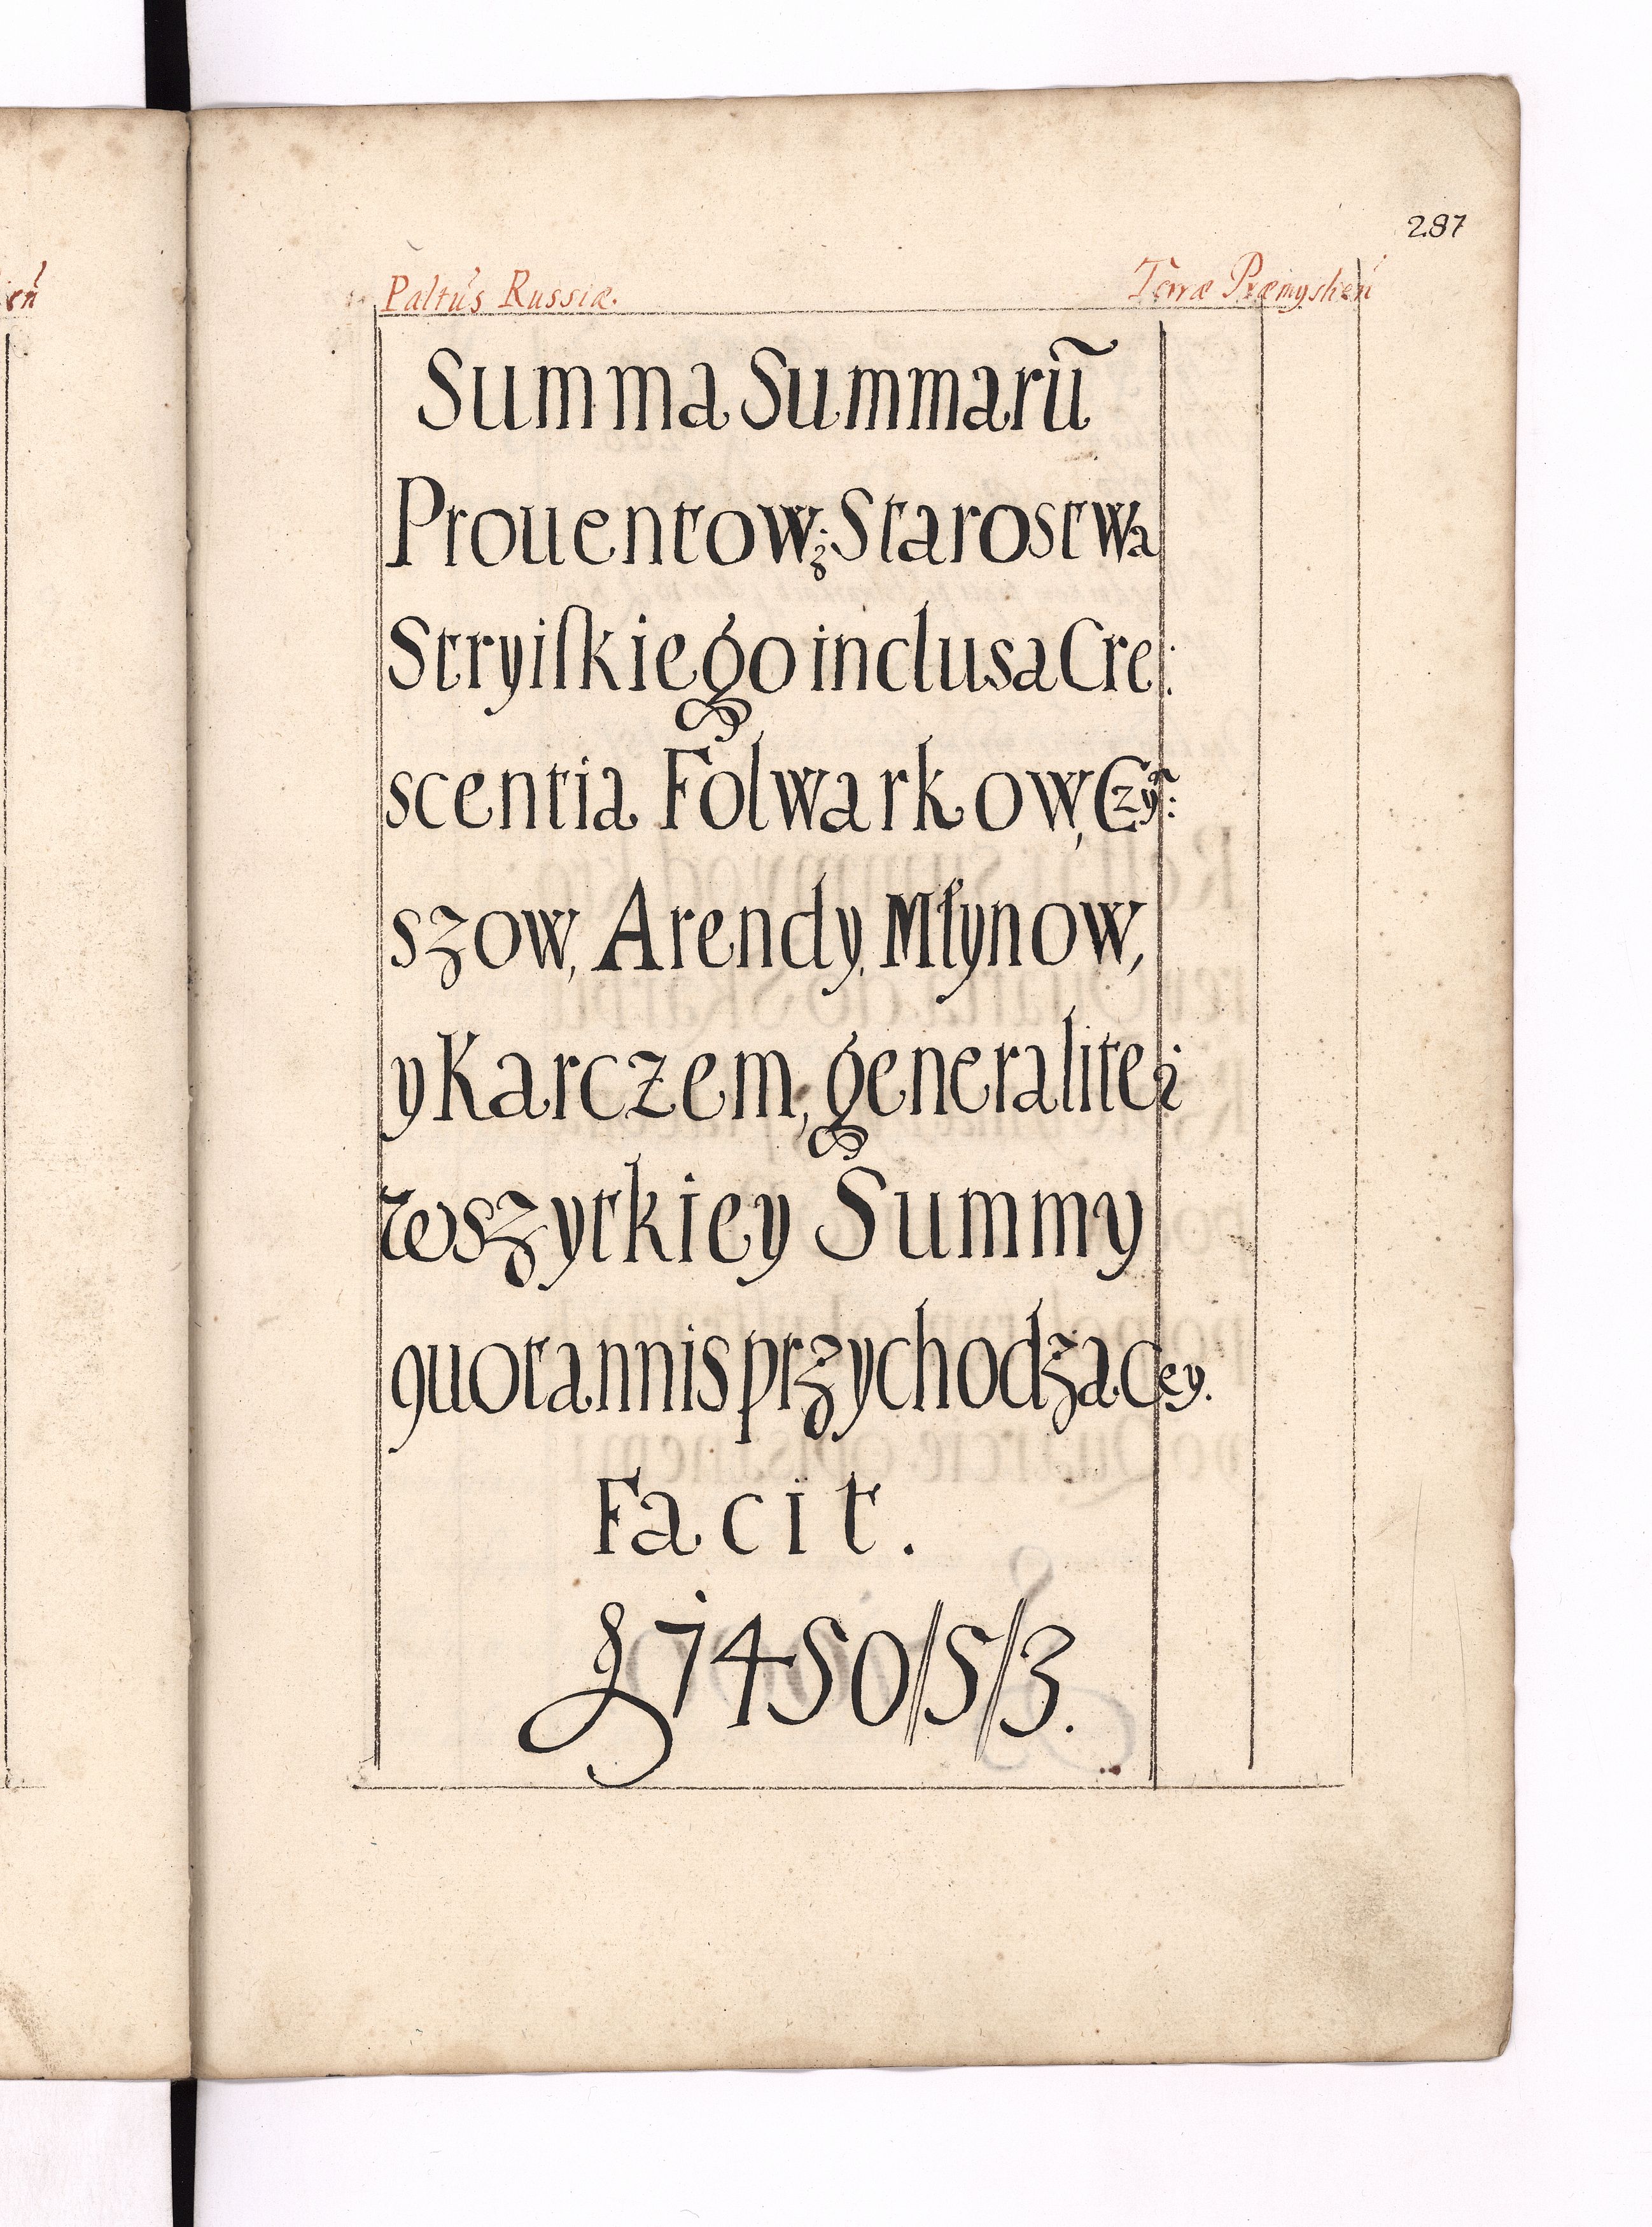 287
Paltus Russiæ. Terræ Præmyslien
Summa Summarū
Prouentow z Starostwa
Stryiſkiego inclusa Cre:
scentia Folwarkow, Czy:
szow, Arendy, Młynow,
y Karczem, generaliter
wszytkiey Summy
quotannis przychodzącey.
Facit.
7450//5//3.